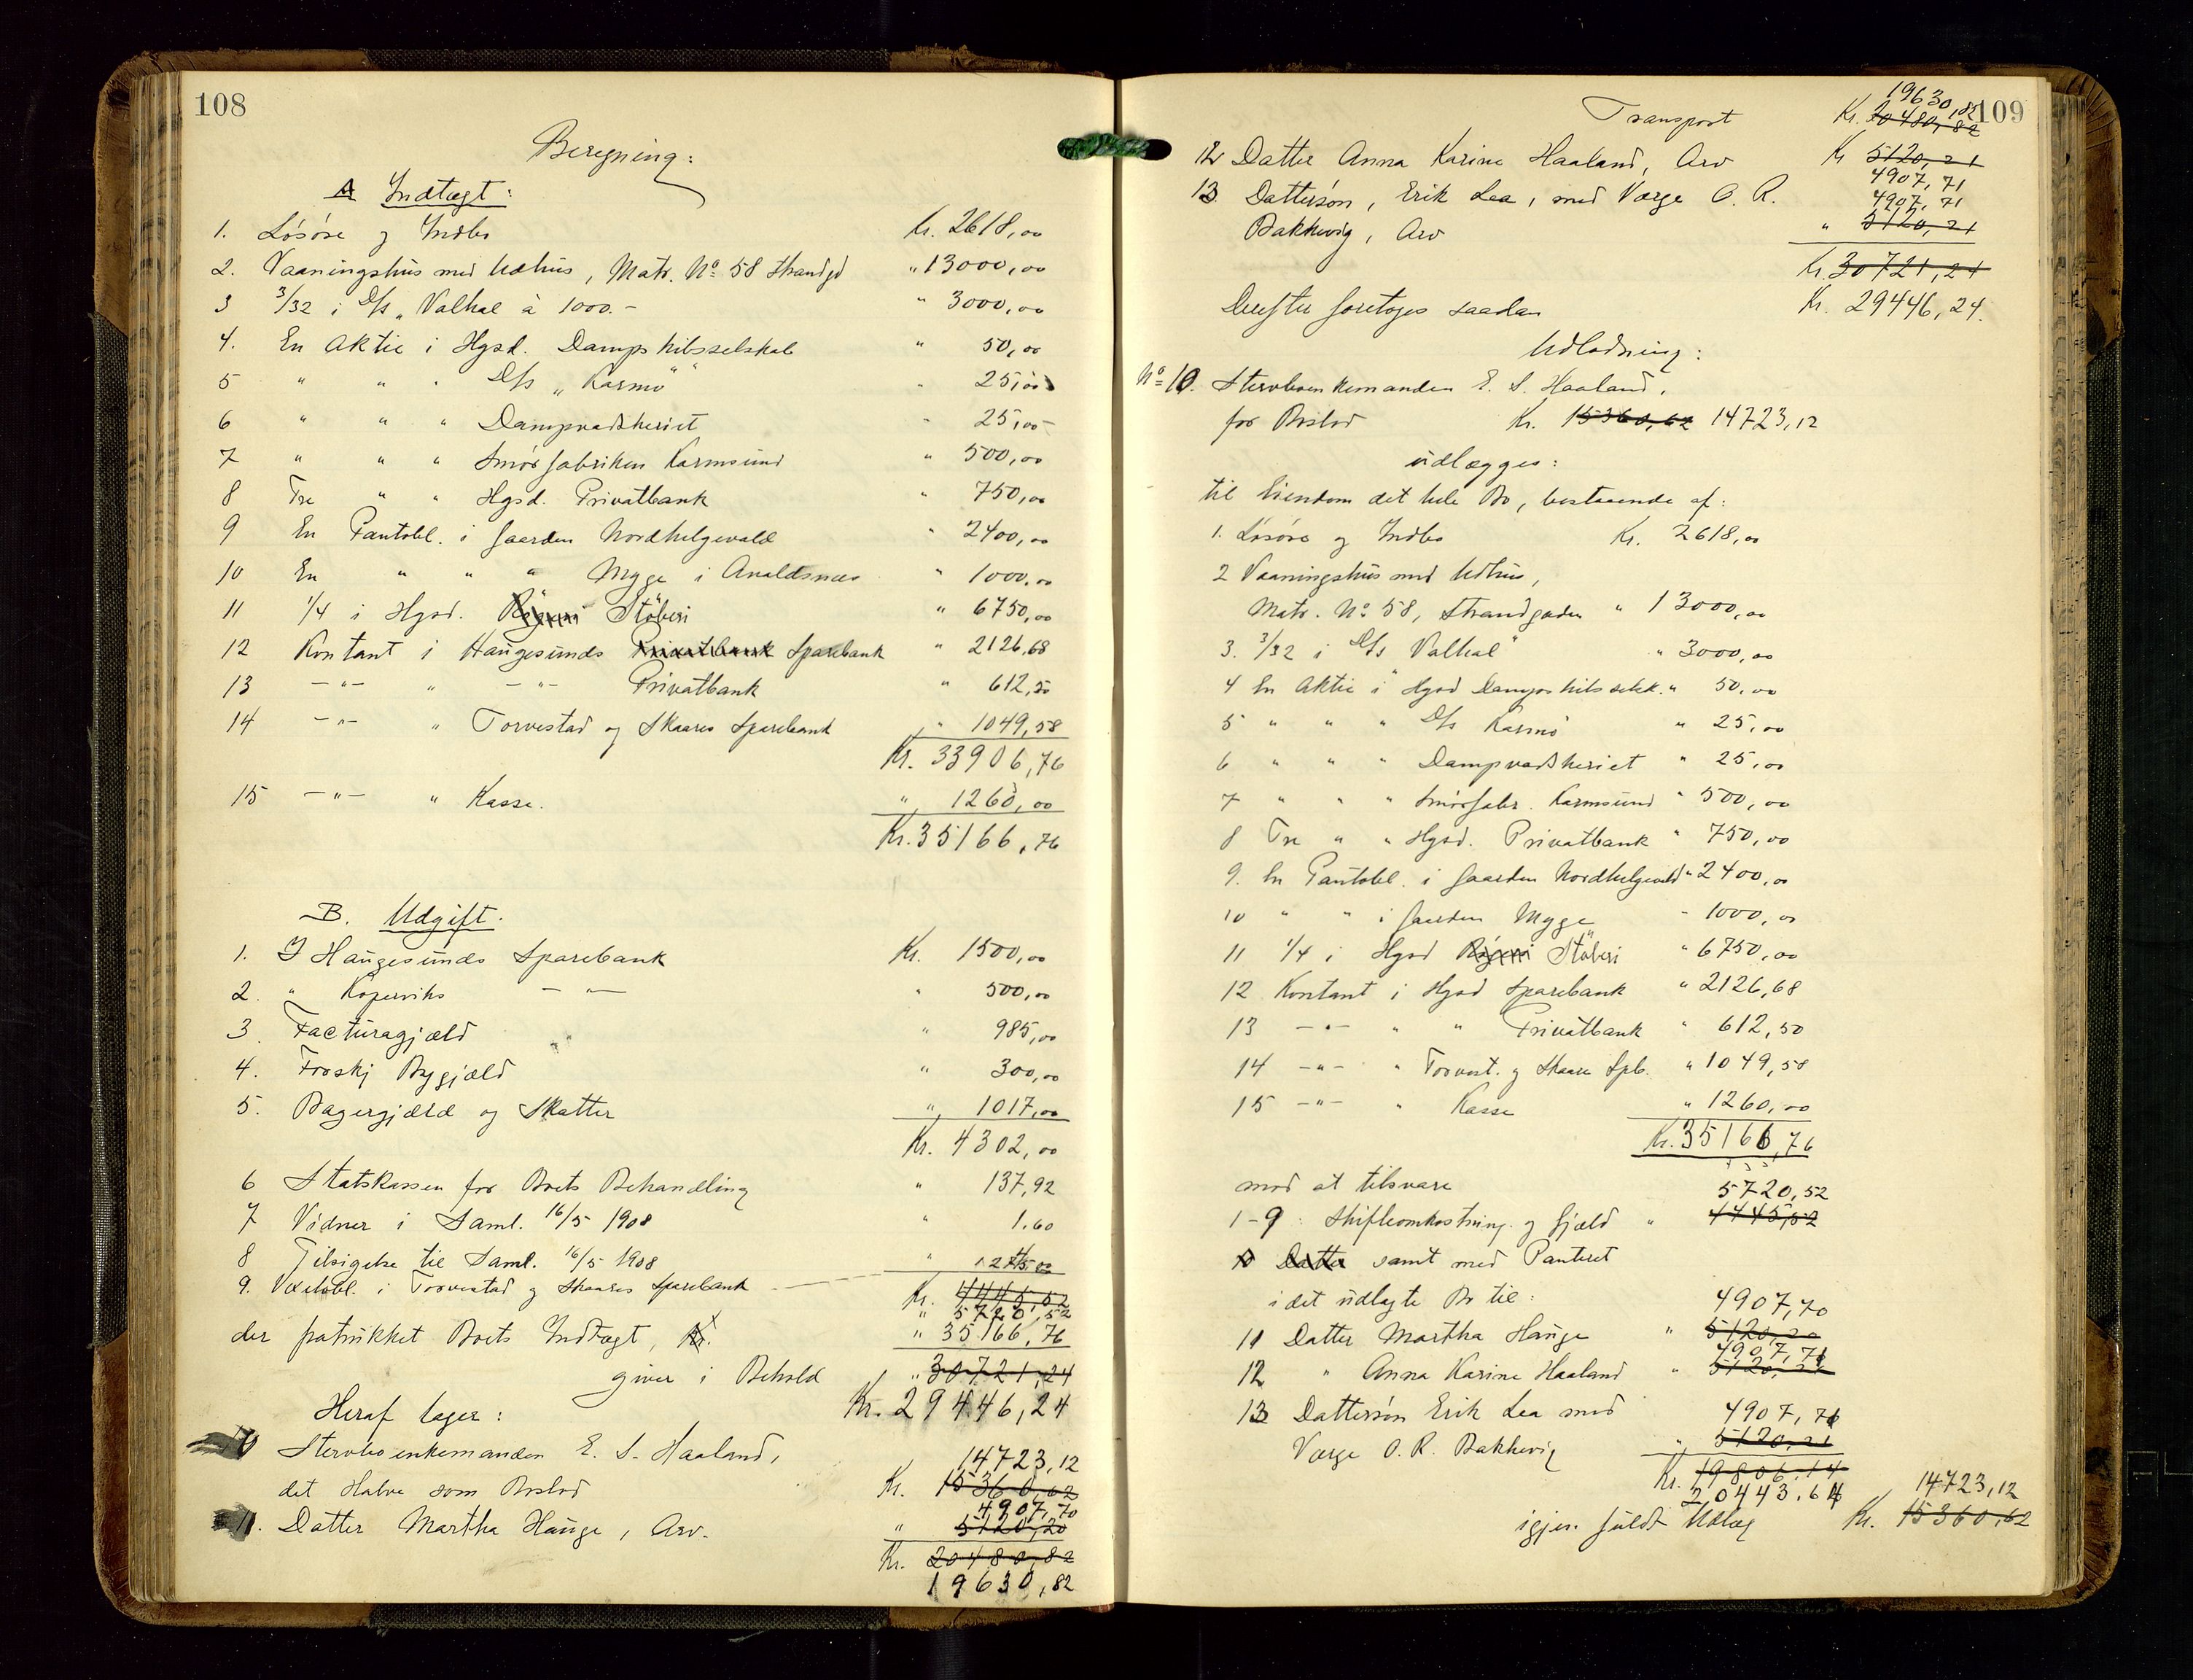 108
Beregning:
A Indtægt:
1. Løsøre og Indbo Kr. 2618,00
2. Vaaningshus med Udhus, Matr. No 58 Strandgd " 13000,00
3 3/32 i D/s „Valhal" à 1000.- " 3000,00
4. En Aktie i Hgsd. Dampskibsselskab " 50,00
5 " " " D/s „Karmø" " 25,00
6 " " " Dampvadskeriet " 25,00
7 " " " Smørfabriken Karmsund " 500,00
8 Tre " " Hgsd. Privatbank " 750,00
9 En Pantobl. i Gaarden Nordhelgevald " 2400,00
10 En " " " Mygge i Avaldsnæs " 1000,00
11 1/4 i Hgsd. Støberi " 6750,00
12 Kontant i Haugesunds Privatbank Sparebank " 2126,68
13 -"- " -"- Privatbank " 612,50
14 -"- " Torvestad og Skaares Sparebank " 1049,58
Kr. 33906,76
15 -"- " Kasse. " 1260,00
Kr. 35166,76
B. Udgift.
1. I Haugesunds Sparebank Kr. 1500,00
2. " Koperviks -"- " 500,00
3. Facturagjæld " 985,00
4. Forskj Bygjæld " 300,00
5. Bagergjæld og Skatter " 1017,00
Kr. 4302,00
6 Statskassen for Boets Behandling " 137,92
7 Vidner i Saml. 16/5 1908 " 1.60
8 Tilsigelse til Saml. 16/5 1908 "
9. Vexelobl. i Torvestad og Skaares Sparebank 1275.00
Kr. 4445,52
" 5720,52
der fratrukket Boets Indtægt, Kr. " 35166,76
giver i Behold " 30721,24
Kr. 29446,24
Heraf tager:
10 Stervboenkemanden E. S. Haaland, 14723,12
det Halve som Boslod Kr. 15360,62
4907,70
11. Datter Martha Hauge, Arv. " 5120,20
Kr. 20480,82
19630,82
109
19630,82
Transport Kr. 20480,82
12 Datter Anna Karine Haaland, Arv Kr 5120,21
4907,71
13 Dattersøn, Erik Lea, med Værge O. R. 4907,71
Bakkevig, Arv " 5120,21
Kr. 30721,24
Derefter foretoges saadan Kr. 29446,24.
Udlodning:
No 10. Stervboenkemanden E. S. Haaland,
for Boslod Kr. 15360,62 14723,12
udlægges:
til Eiendom det hele Bo, bestaaende af:
1. Løsøre og Indbo Kr. 2618,00
2 Vaaningshus med Udhus,
Matr. No 58, Strandgaden " 13000,00
3. 3/32 i D/s „Valhal" " 3000,00
4 En Aktie i Hgsd Dampskibsselsk. " 50,00
5 " " " D/s Karmø " 25,00
6 " " " Dampvadskeriet " 25,00
7 " " " Smørfabr. Karmsund " 500,00
8 Tre " " Hgsd. Privatbank " 750,00
9. En Pantobl. i Gaarden Nordhelgevald " 2400,00
10 " " i Gaarden Mygge " 1000,00
11 1/4 i Hgsd Støberi " 6750,00
12 Kontant i Hgsd Sparebank " 2126,68
13 -"- " " Privatbank " 612,50
14 -"- " Torvest. og Skaare Spb. " 1049,58
15 -"- " Kasse " 1260,00
Kr. 35166,76
mod at tilsvare 5720,52
1-9: Skifteomkostning. og Gjæld " 4445,52
10 Datter samt med Panteret
i det udlagte Bo til: 4907,70
11 Datter Martha Hauge " 5120,20
4907,71
12 " Anna Karine Haaland " 5120,21
13 Dattersøn Erik Lea med 4907,71
Værge O. R. Bakkevig " 5120,21
Kr. 19806.14
20443.64 14723,12
igjen fuldt Udlæg Kr. 15360,62